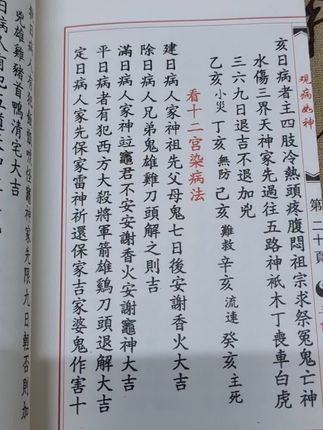 觀病如神
第二十頁
亥日病者主四肢冷熱頭疼腹悶祖宗求祭冤鬼亡神
水傷三界天神家先過往五路神祇木丁喪車白虎
三六九日退吉不退加兇
乙亥小災 丁亥無防 己亥難救 辛亥流連 癸亥主死
看十二宮染病法
建日病人家神祖先父母鬼七日後安謝香火大吉
除日病人兄弟鬼雄雞刀頭解之則吉
滿日病人家神竝竈君不安安謝香火安謝竈神大吉
平日病者有犯西方大殺將軍箭雄鷄刀頭退解大吉
定日病人家先保家雷神祈還保家吉家婆鬼作害十
兇雄雞豬首鴨清宅大吉